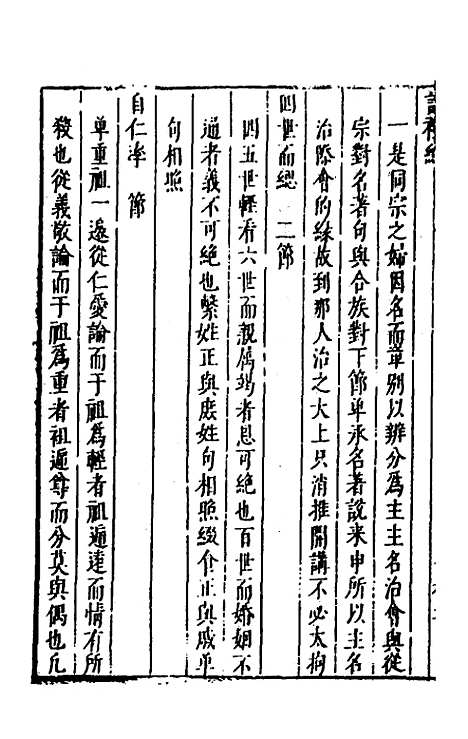 一是同宗之婦因名而章別以辨分為主主名治會與從
宗對名著句與合族對下節单承名著說来申所以主名
治際會的縁故到那人治之大上只消推開講不必太拘
四世而緦 二節
四五世輕看六世而親属竭者恩可絶也百世而婚姻不
通者義不可絶也繫姓正與庶姓句相照綴食正與戚单
句相照
自仁率 節
单重祖一邉從仁愛論而于祖為輕者祖逓逺而情有所
殺也從義敬論而于祖為重者祖逓尊而分莫與偶也凢